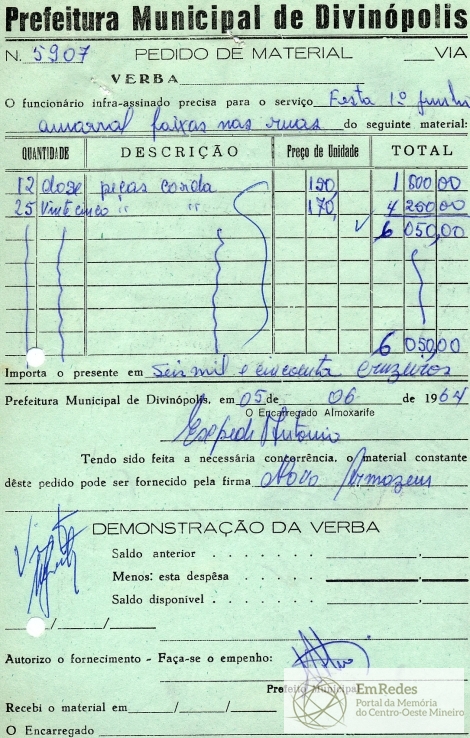 Prefeitura Municipal de Divinópolis
N. 5907 PEDIDO DE MATERIAL VIA
VERBA
O funcionário infra-assinado precisa para o serviço Festa 1º
faixas nas ruas do seguinte material:
QUANTIDADE DESCRIÇÃO Preço de Unidade TOTAL
12 doze peças corda 150 1 800 00
25 Vinte cinco " " 170, 4 250,00
6 050,00
6 050,00
Importa o presente em Seis mil e cincoenta Cruzeiros
Prefeitura Municipal de Divinópolis, em 05 de 06 de 1964
O Encarregado Almoxarife
Antonio
Tendo sido feita a necessária concorrência, o material constante
dêste pedido pode ser fornecido pela firma Novo Armazens
Visto
DEMONSTRAÇÃO DA VERBA
Saldo anterior
Menos: esta despêsa
Saldo disponivel
Autorizo o fornecimento - Faça-se o empenho:
Prefeito Municipal
EmRedes
Portal da Memória
do Centro-Oeste Mineiro
Recebi o material em / /
O Encarregado